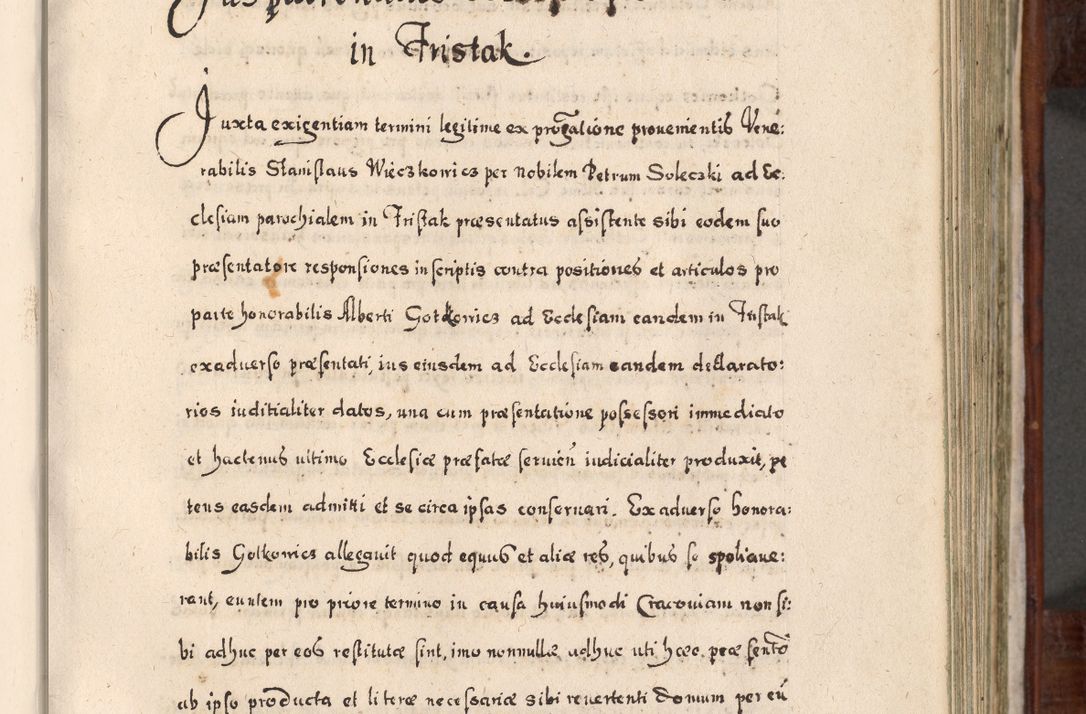 in Fristak.
Juxta exigentiam termini legitime ex progatione prouenientis Vene:
rabilis Stanislaus Wieczkowicz per nobilem Petrum Soleczki ad Ec:
clesiam parochialem in Fristak præsentatus assistente sibi eodem suo
præsentatore responsiones in scriptis contra positiones et articulos pro
parte honorabilis Alberti Gotkowicz ad Ecclesiam eandem in Fristak
exaduerso præsentati, ius eiusdem ad Ecclesiam eandem declarato:
rios iuditialiter datos, una cum præsentatione possessori immediato
et hactenus ultimo Ecclesiæ præfatæ seruien iudicialiter produxit, pe
tens easdem admitti et se circa ipsas conseruari. Exaduerso honora:
bilis Gotkowicz allegauit quod equus et aliæ res, quibus se spoliaue:
rant, euntem pro priore termino in causa huiusmodi Cracouiam non si:
bi adhuc per eos restitutæ sint, imo nonnullæ adhuc uti hæc præsento
ab ipso producta et literæ necessariæ sibi reuertenti domum per eū